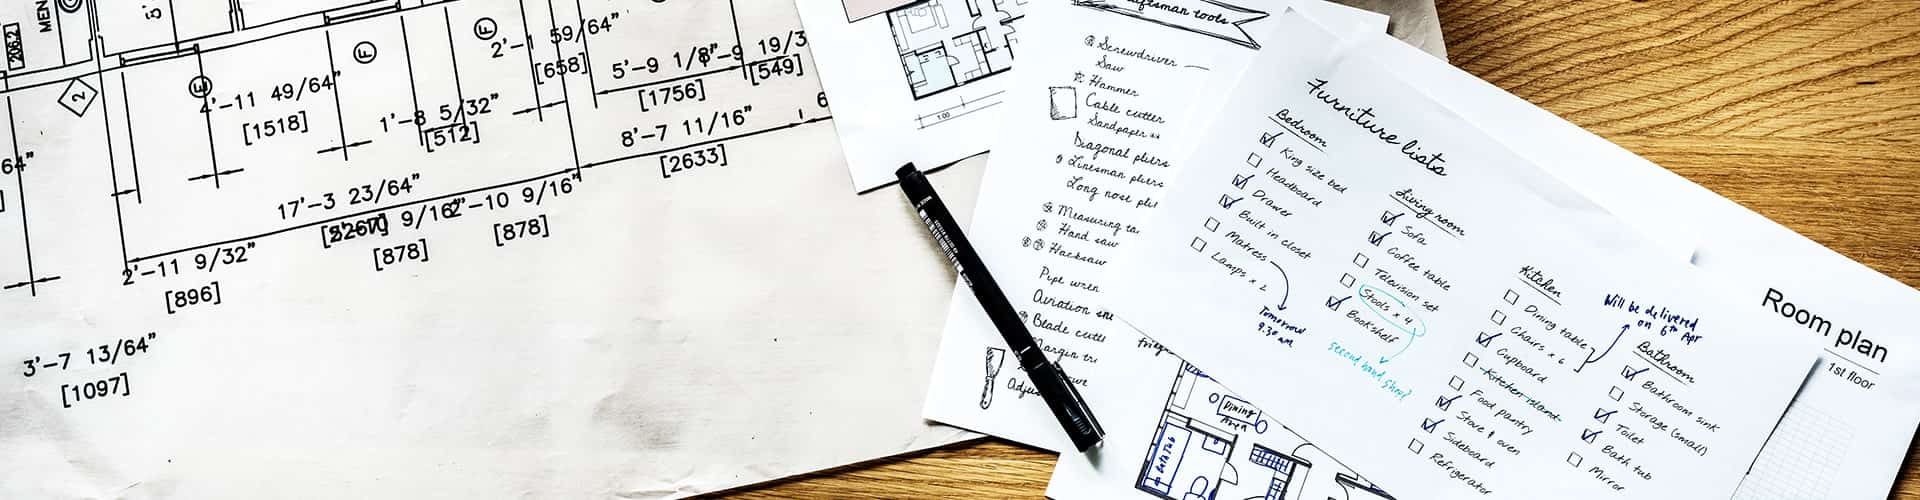 206.2
MEN
5'
2
E
F
F
64"
4'-11 49/64"
[1518]
1'-8 5/32"
[512]
2'-1 59/64"
[658]
5'-9 1/8"
[1756]
[549]
8'-7 11/16"
[2633]
6
17'-3 23/64"
9/16"
2'-10 9/16"
[878]
[878]
2'-11 9/32"
[896]
3'-7 13/64"
[1097]
1.00
tools
Screwdriver
Saw
Hammer
Cable cutter
Sandpaper
Diagonal pliers
Linesman pliers
Long nose
Measuring
Hand saw
Hacksaw
Pipe
Aviation
Blade
Furniture lists
Bedroom
King size bed
Headboard
Drawer
Built in closet
Matress
Lamps x 2
Tomorrow
9.30 am
Living room
Sofa
Coffee table
Television set
Stools x 4
Bookshelf
second hand shop?
Kitchen
Dining table
Chairs x 6
Cupboard
Kitchen island
Food pantry
Stove & oven
Sideboard
Refrigerator
Will be delivered
on 6th Apr
Bathroom
Bathroom sink
Storage (small)
Toilet
Bath tub
Mirror
Room plan
1st floor
Dining
Area
Bath Tub